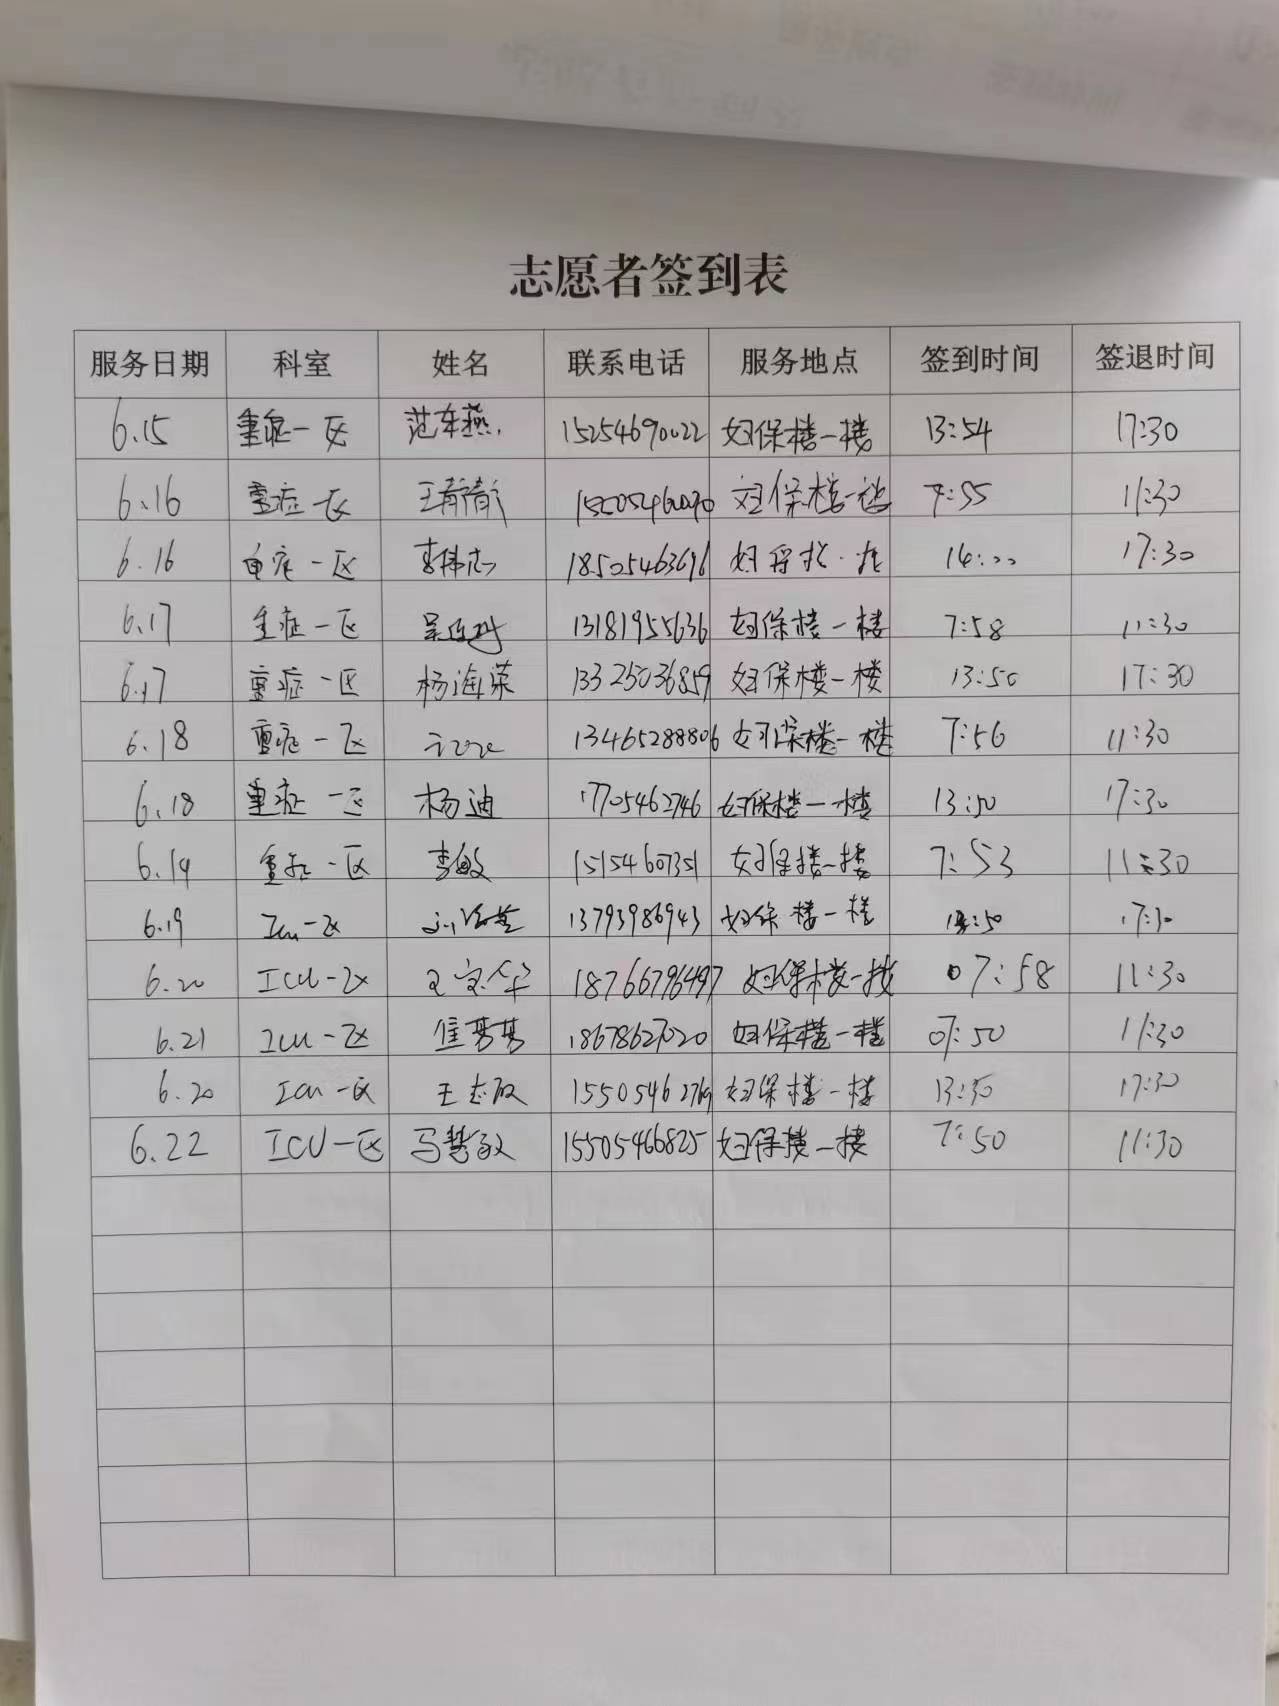 志愿者签到表
服务日期 科室 姓名 联系电话 服务地点 签到时间 签退时间
6.15 重症一区 范车燕 15254690022 妇保楼一楼 13:54 17:30
6.16 重症一区 王 妇保楼一楼 7:55 11:30
6.16 重症一区 李伟志 18505463696 17:30
6.17 重症一区 13181955636 妇保楼一楼 7:58 11:30
6.17 重症一区 杨海荣 13325036859 妇保楼一楼 13:50 17:30
6.18 重症一区 13465288806 妇保楼一楼 7:56 11:30
6.18 重症一区 杨迪 17705462746 妇保楼一楼 13:50 17:30
6.19 重症一区 李敏 15154607351 妇保楼一楼 7:53 11:30
6.19 Icu一区 13793986943 妇保楼一楼 17:30
6.20 ICU一区 王宝华 18766796497 妇保楼一楼 07:58 11:30
6.21 Icu一区 崔梦梦 18678627020 妇保楼一楼 07:50 11:30
6.20 Icu一区 王志敏 妇保楼一楼 13:50 17:30
6.22 ICU一区 马慧敏 15505466825 妇保楼一楼 7:50 11:30